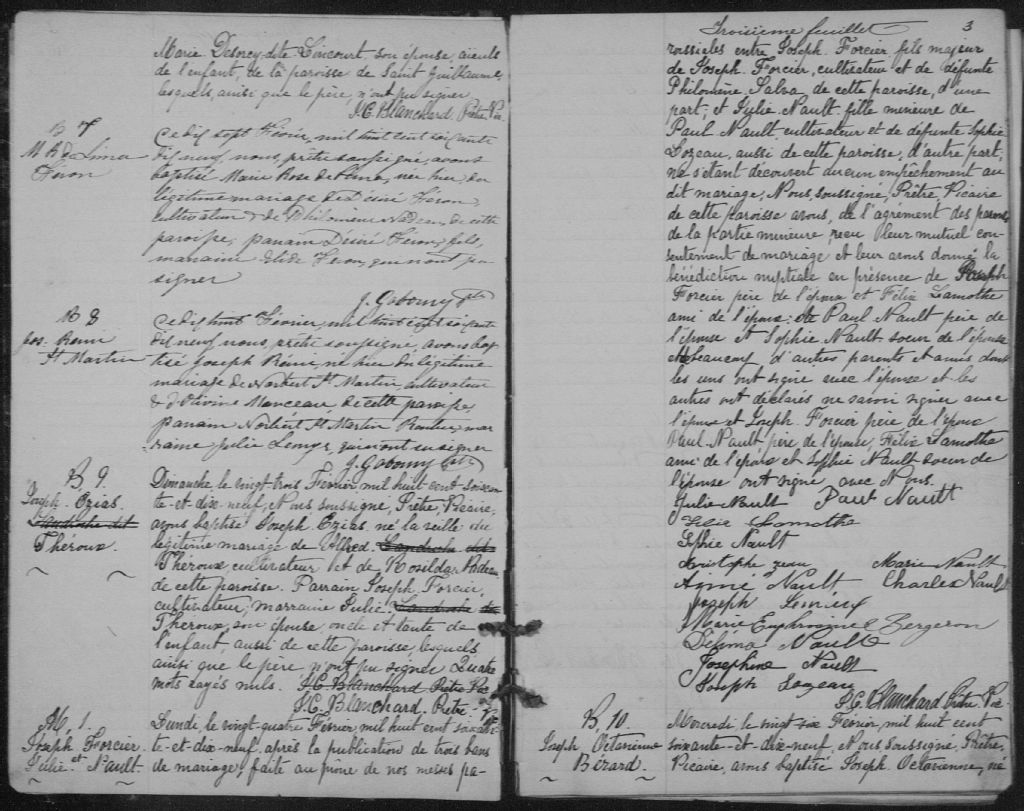 Marie Desorcy dite Lincourt son épouse, aïeuls
de l'enfant, de la paroisse de Saint Guillaume,
lesquels, ainsi que le père, n'ont pu signer
J.C. Blanchard, Prêtre Vic.
B 7
M R D Lima
Féron
Ce dix sept Février, mil huit cent soixante
dix neuf, nous, prêtre soussigné, avons
baptisé Marie Rose de Lima, née hier, du
légitime mariage de Désiré Féron,
cultivateur & de Philomène Nadeau, de cette
paroisse; parrain Désiré Féron, fils,
marraine Féron, qui n'ont pu
signer
B 8
Jos. Rémi
St Martin
Ce dix huit Février, mil huit cent soixante
dix neuf, nous, prêtre soussigné, avons bap
tisé Joseph Rémi, né hier du légitime
mariage de Norbert St Martin, cultivateur
& d'Olivine Manceau, de cette paroisse,
parrain Norbert St Martin Rentier, mar
raine Julie, qui n'ont su signer
B 9.
Joseph Ozias.
Théroux.
Dimanche, le vingt trois Février, mil huit cent soixan
te-et-dix-neuf, Nous soussigné, Prêtre, Vicaire,
avons baptisé Joseph Ozias né la veille du
légitime mariage de Alfred
Théroux, cultivateur et de Rosilda Nadeau,
de cette paroisse. Parrain Joseph Forcier,
cultivateur; marraine Julie
Théroux, son épouse, oncle et tante de
l'enfant, aussi de cette paroisse, lesquels
ainsi que le père n'ont pu signer. Quatre
mots rayés nuls. J.C. Blanchard Prêtre Vic
J.C. Blanchard, Prêtre - Vic
M. 1.
Joseph Forcier
et
Julie Nault.
Lundi, le vingt-quatre Février, mil huit cent soixan-
te-et-dix-neuf, après la publication de trois bans
de mariage, faite au prône de nos messes pa-
Troisième feuillet
3
roissiales entre Joseph Forcier fils majeur
de Joseph Forcier, cultivateur et de défunte
Philomène Salva, de cette paroisse, d'une
part; et Julie Nault fille mineure de
Paul Nault cultivateur et de défunte Sophie
Lozeau, aussi de cette paroisse, d'autre part;
ne s'étant découvert aucun empêchement au
dit mariage; Nous, soussigné, Prêtre, Vicaire
de cette paroisse avons, de l'agrément des parents
de la partie mineure, reçu leur mutuel con-
sentement de mariage et leur avons donné la
bénédiction nuptiale en présence de Joseph
Forcier père de l'époux et Félix Lamothe
ami de l'époux; de Paul Nault père de
l'épouse et Sophie Nault soeur de l'épouse
et beaucoup d'autres parents et amis dont
les uns ont signé avec l'épouse et les
autres ont déclarés ne savoir signer avec
l'époux et Joseph Forcier père de l'époux
Paul Nault père de l'épouse, Félix Lamothe
ami de l'époux et Sophie Nault soeur de
l'épouse ont signé avec Nous.
Julie Nault Paul Nault
Felix Lamothe
Sophie Nault
Christophe Marie Nault
Aimé Nault Charles Nault
Joseph Lemieux
Marie Euphrosine Bergeron
Délima Nault
Josephine Nault
Joseph Lozeau
J.C. Blanchard Prêtre Vic-
B. 10.
Joseph Octavienne
Bizard.
Mercredi, le vingt six Février, mil huit cent
soixante-et-dix-neuf, Nous soussigné, Prêtre,
Vicaire, avons baptisé Joseph Octavienne, né